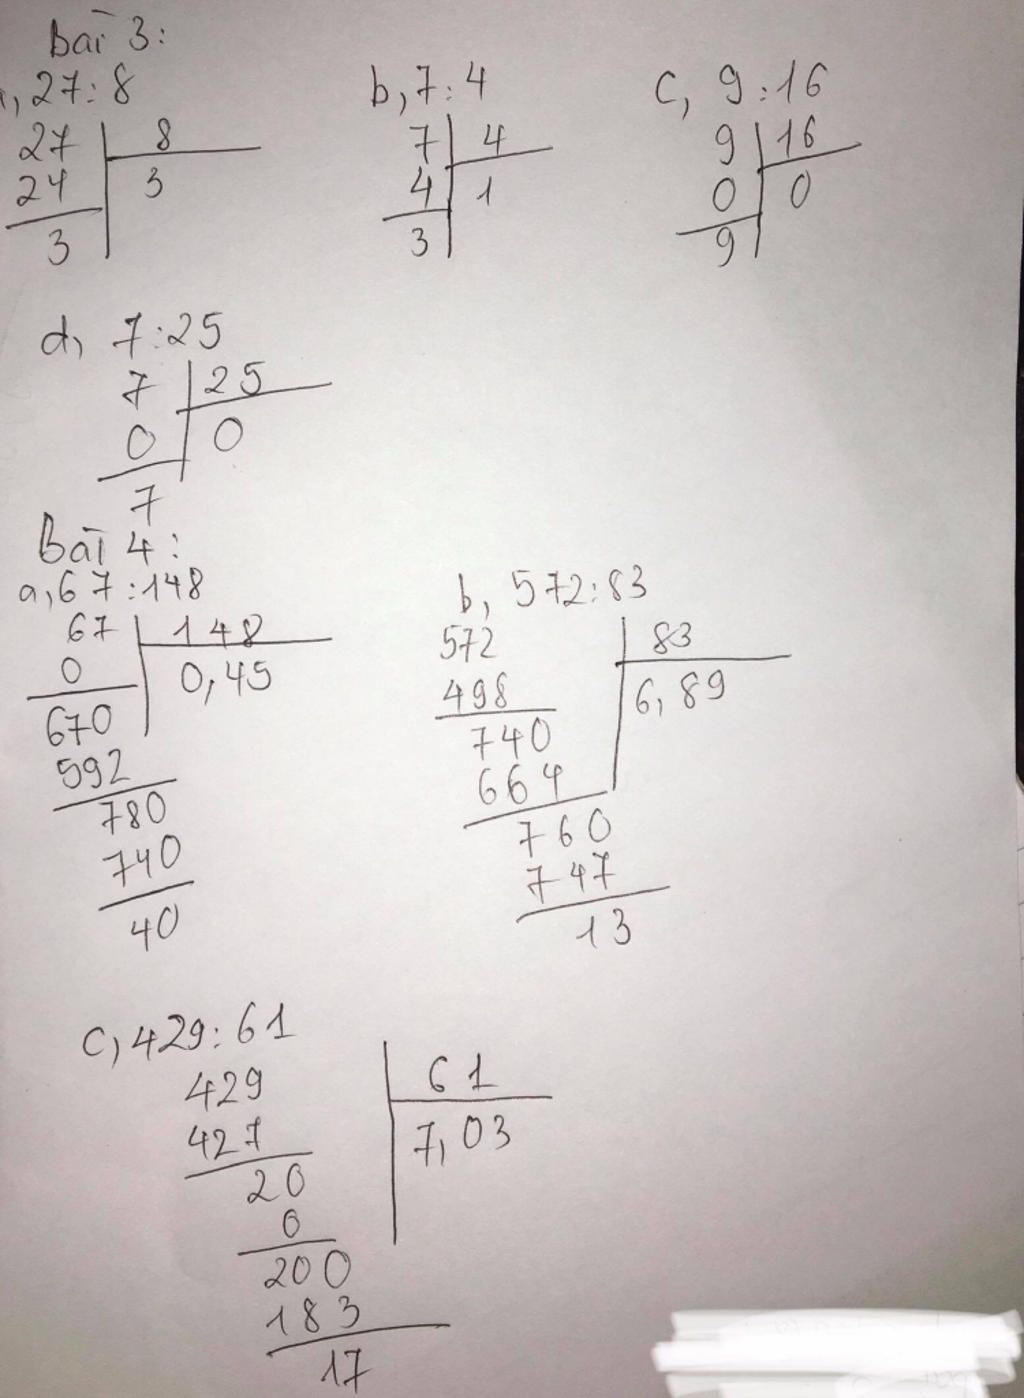 Bài 3:
, 27:8
27 8
24 3
3
b, 7:4
7 4
4 1
3
c, 9:16
9 16
0 0
9
d, 7:25
7 25
0 0
7
Bài 4:
a, 67:148
67 148
0 0,45
670
592
780
740
40
b, 572:83
572 83
498 6,89
740
664
760
747
13
c, 429:61
429 61
427 7,03
20
0
200
183
17